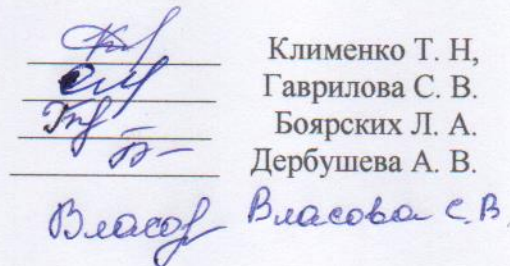 Клименко Т. Н,
Гаврилова С. В.
Боярских Л. А.
Дербушева А. В.
Власова С.В.